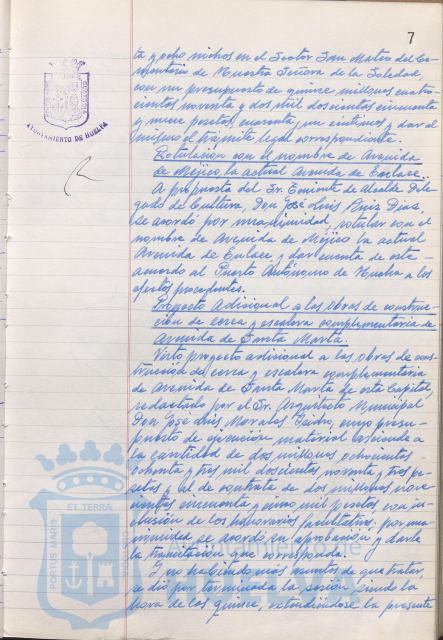 7
ta y ocho nichos en el Sector San Mateo del Ce-
menterio de Nuestra Señora de la Soledad,
con un presupuesto de quince millones cuatro-
cientos noventa y dos mil doscientos cincuenta
y nueve pesetas, cuarenta y un céntimos y dar al
mismo el trámite legal correspondiente.
Rotulación con el nombre de Avenida
de Méjico la actual Avenida de Enlace.
A propuesta del Sr. Teniente de Alcalde Dele-
gado de Cultura, Don José Luis Ruiz Díaz,
se acordó por unanimidad, rotular con el
nombre de Avenida de Méjico la actual
Avenida de Enlace y dar cuenta de este
acuerdo al Puerto Autónomo de Huelva a los
efectos procedentes.
Proyecto Adicional a las obras de construc-
ción de cerca y escalera complementaria de
Avenida de Santa Marta.
Visto proyecto adicional a las obras de cons-
trucción de cerca y escalera complementaria
de Avenida de Santa Marta de esta Capital,
redactado por el Sr. Arquitecto Municipal
Don José Luis Morales, cuyo presu-
puesto de ejecución material asciende a
la cantidad de dos millones ochocientas
ochenta y tres mil doscientas noventa y tres pe-
setas y el de contrata de dos millones, nove-
cientas cincuenta y cinco mil pesetas con in-
clusión de los honorarios facultativos, por una-
nimidad se acordó su aprobación y darle
la tramitación que corresponda.
Y no habiendo más asuntos de que tratar,
se dió por terminada la sesión siendo la
hora de las quince, extendiéndose la presente
AYUNTAMIENTO DE HUELVA
PORTUS MARIS
ET TERRÆ